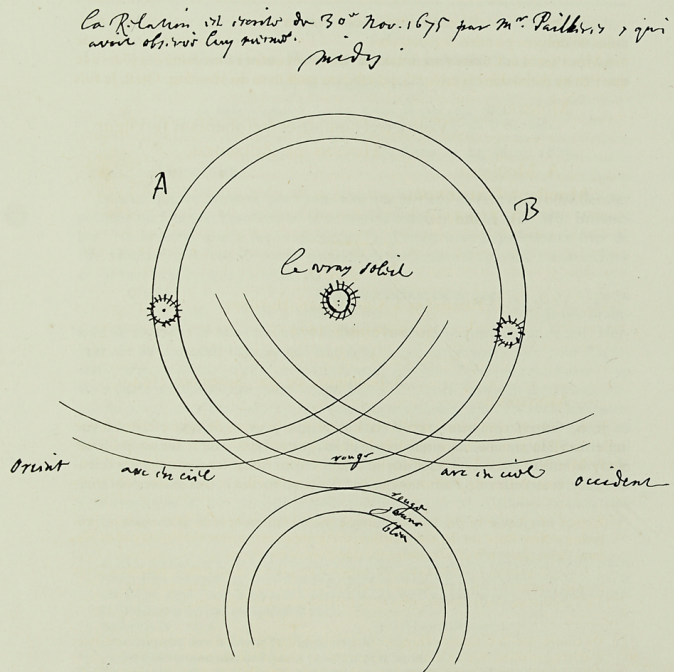 la Relation est escrite du 30e Nov. 1675 par Mr. , qui
avoit observé luy mesme.
midy
A
B
le vray soleil
rouge
orient
arc en ciel
arc en ciel
occident
rouge
jaune
bleu